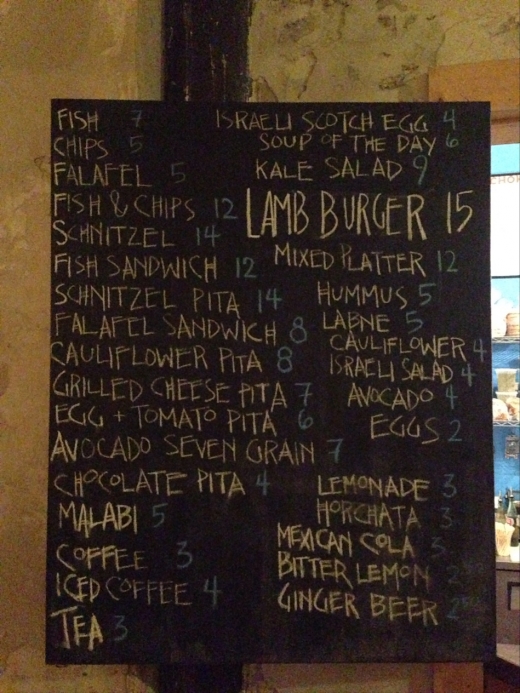 FISH 7
CHIPS 5
FALAFEL 5
FISH & CHIPS 12
SCHNITZEL 14
FISH SANDWICH 12
SCHNITZEL PITA 14
FALAFEL SANDWICH 8
CAULIFLOWER PITA 8
GRILLED CHEESE PITA 7
EGG + TOMATO PITA 6
AVOCADO SEVEN GRAIN 7
CHOCOLATE PITA 4
MALABI 5
COFFEE 3
ICED COFFEE 4
TEA 3
ISRAELI SCOTCH EGG 4
SOUP OF THE DAY 6
KALE SALAD 9
LAMB BURGER 15
MIXED PLATTER 12
HUMMUS 5
LABNE 5
CAULIFLOWER 4
ISRAELI SALAD 4
AVOCADO 4
EGGS 2
LEMONADE 3
HORCHATA 3
MEXICAN COLA 3
BITTER LEMON
GINGER BEER